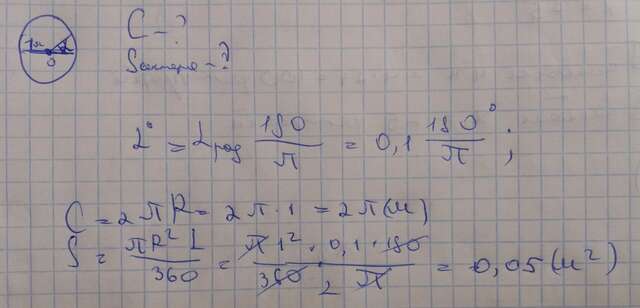 C - ?
Sсектора - ?
1м α
0
α° = α рад 180/π = 0,1 180°/π ;
C = 2πR = 2π·1 = 2π(м)
S = πR²α/360 = π1²·0,1·180/360 2 π = 0,05(м²)